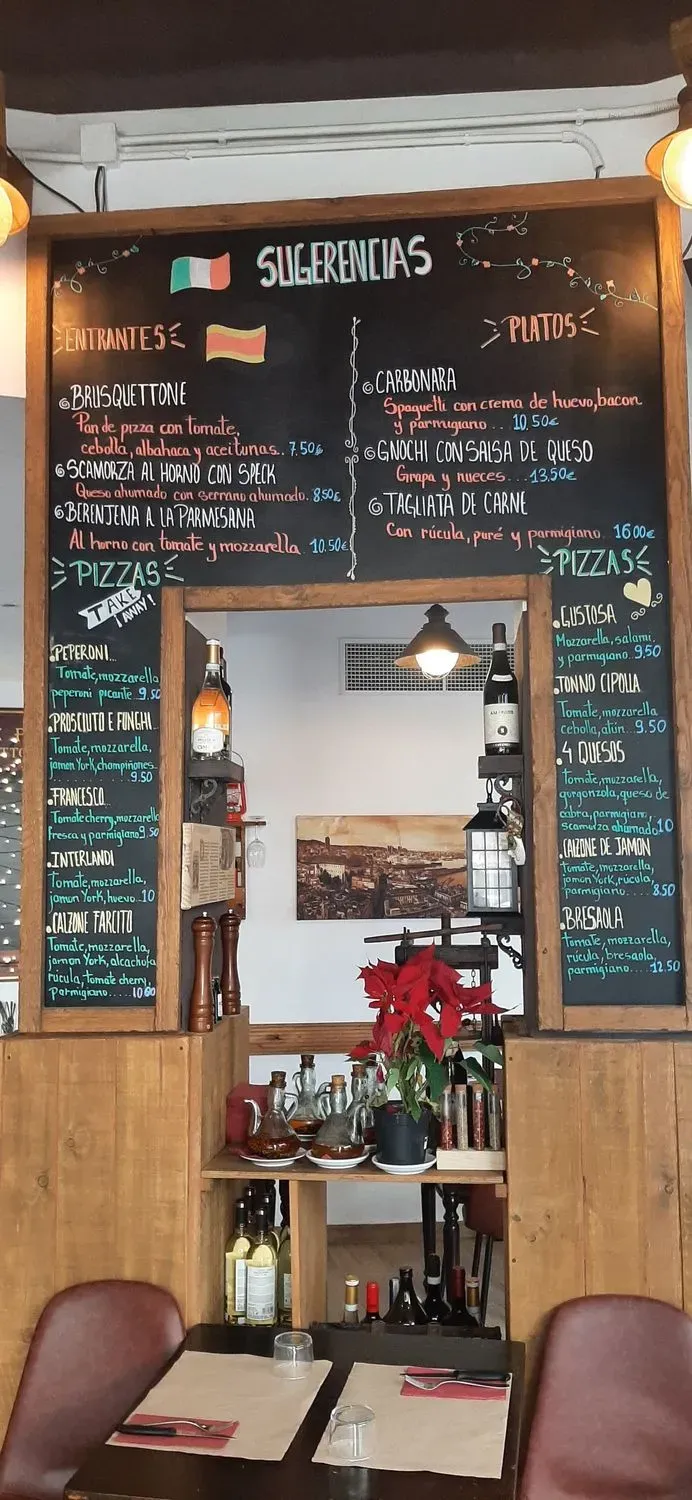 SUGERENCIAS
ENTRANTES
BRUSQUETTONE
Pan de pizza con tomate,
cebolla, albahaca y aceitunas.. 7.50€
SCAMORZA AL HORNO CON SPECK
Queso ahumado con serrano ahumado. 8.50€
BERENJENA A LA PARMESANA
Al horno con tomate y mozzarella. 10.50€
PLATOS
CARBONARA
Spaguetti con crema de huevo, bacon
y parmigiano... 10.50€
GNOCHI CON SALSA DE QUESO
Grapa y nueces... 13.50€
TAGLIATA DE CARNE
Con rúcula, puré y parmigiano. 16 00€
PIZZAS
TAKE
AWAY!
PEPERONI...
Tomate, mozzarella
peperoni picante 9.50
PROSCIUTO E FUNGHI
Tomate, mozzarella,
jamon York, champiñones
........ 9.50
FRANCESCO...
Tomate cherry, mozzarella
fresca y parmigiano 9.50
INTERLANDI
Tomate, mozzarella,
jamon York, huevo..10
CALZONE FARCITO
Tomate, mozzarella,
jamon York, alcachofa
rúcula, tomate cherry,
Parmigiano.....10 00
PIZZAS
GUSTOSA
Mozzarella, salami.
y parmigiano...9,50
TONNO CIPOLLA
Tomate, mozzarella
cebolla, atún...9.50
4 QUESOS
Tomate, mozzarella,
gorgonzola, queso de
cabra, parmigiano,
scamorza ahumado 10
CALZONE DE JAMON
Tomate, mozzarella,
jamon York, rúcula,
parmigiano....... 8.50
BRESAOLA
tomate, mozzarella,
rúcula, bresaola,
parmigiano.....12.50